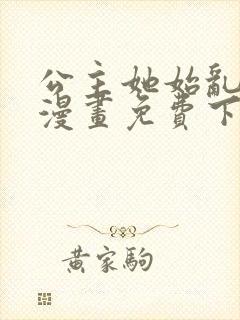 公主她始亂
漫畫免費下
黃家駒